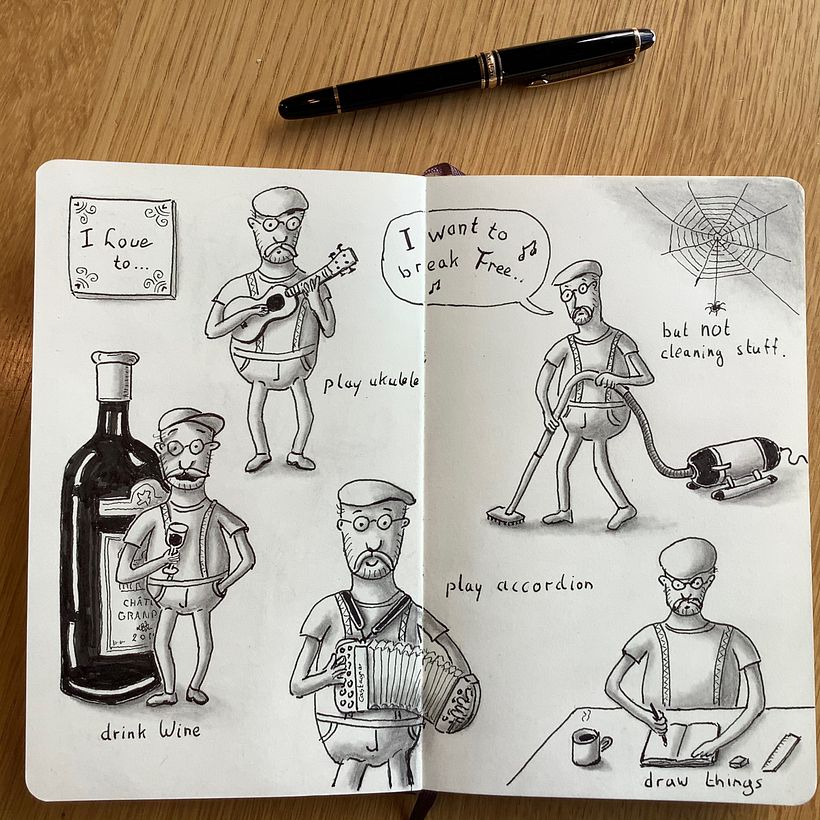 I love
to...
play ukulele
drink Wine
CHÂT
GRAND
Castagnari
I want to
break Free...
but not
cleaning stuff.
play accordion
draw things